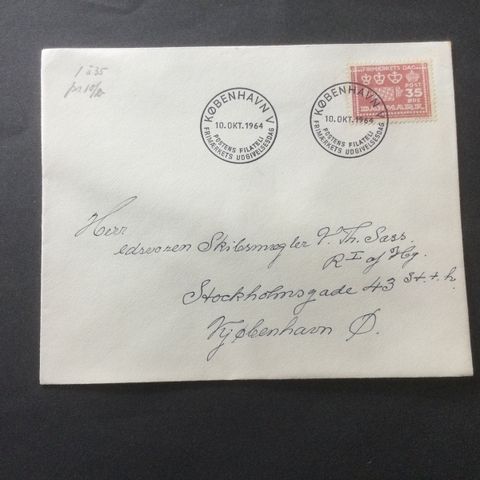 1 à 35
KØBENHAVN V
10.OKT.1964
POSTENS FILATELI
FRIMÆRKETS UDGIVELSESDAG
KØBENHAVN V
10.OKT.1964
POSTENS FILATELI
FRIMÆRKETS UDGIVELSESDAG
FRIMÆRKETS DAG
POST
35
ØRE
DANMARK
Herr
edsvoren Skibsmægler V. Th. Sass
R I af Hg.
Stockholmsgade 43 St. t. h.
Kjøbenhavn Ø.